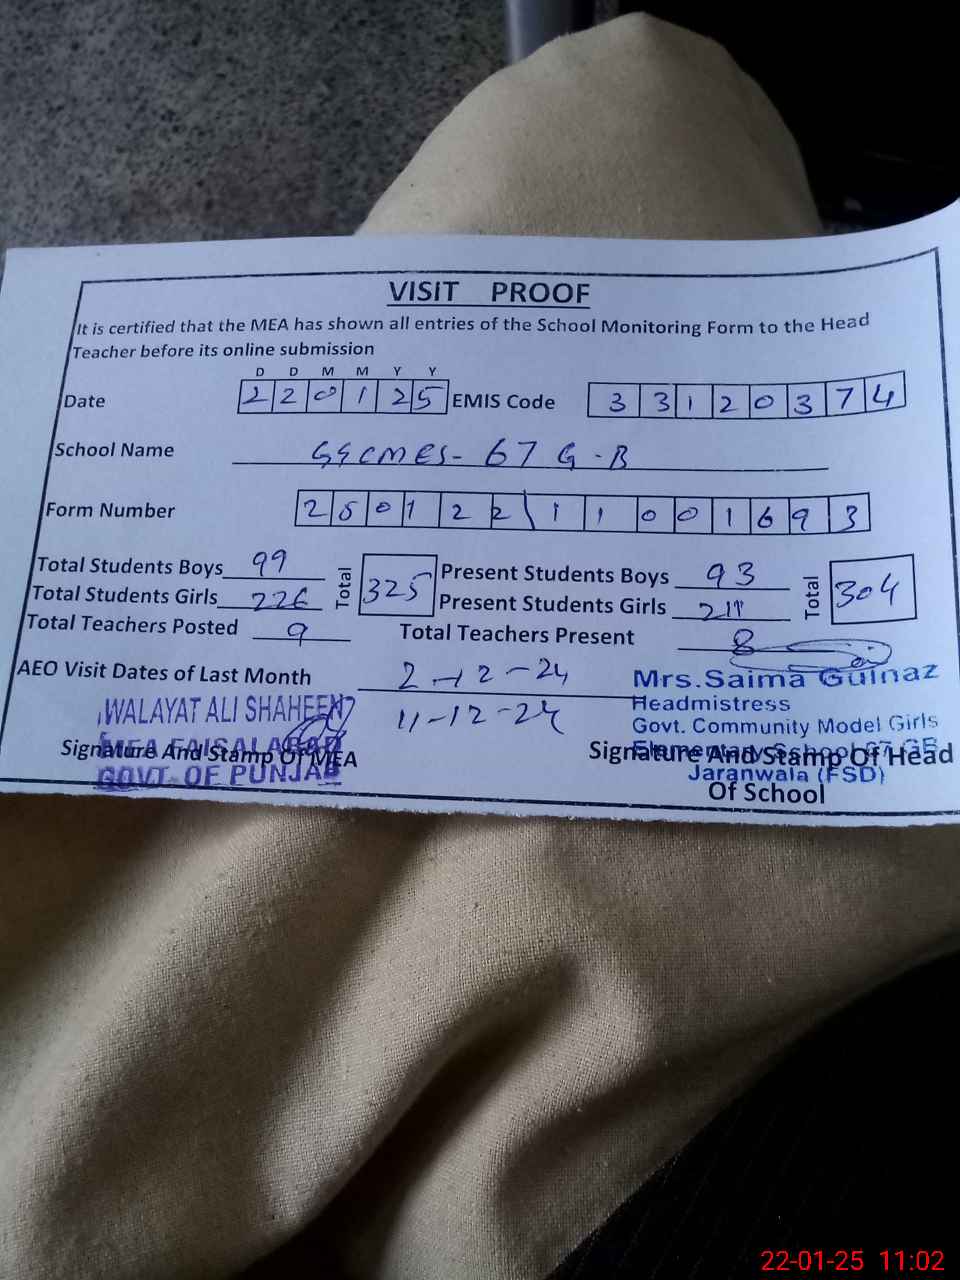 VISIT PROOF
It is certified that the MEA has shown all entries of the School Monitoring Form to the Head
Teacher before its online submission
D D M M Y Y
Date 2 2 0 1 2 5 EMIS Code 3 3 1 2 0 3 7 4
School Name GGCMES- 67 G-B
Form Number 2 5 0 1 2 2 \ 1 1 0 0 1 6 9 3
Total Students Boys 99 Total 325 Present Students Boys 93 Total 304
Total Students Girls 226 Present Students Girls 211
Total Teachers Posted 9 Total Teachers Present 8
AEO Visit Dates of Last Month 2-12-24
11-12-24
WALAYAT ALI SHAHEEN
MEA FAISALABAD
GOVT. OF PUNJAB
Signature And Stamp Of MEA
Mrs.Saima Gulnaz
Headmistress
Govt. Community Model Girls
Elementary School 67 GB
Jaranwala (FSD)
Signature And Stamp Of Head
Of School
22-01-25 11:02